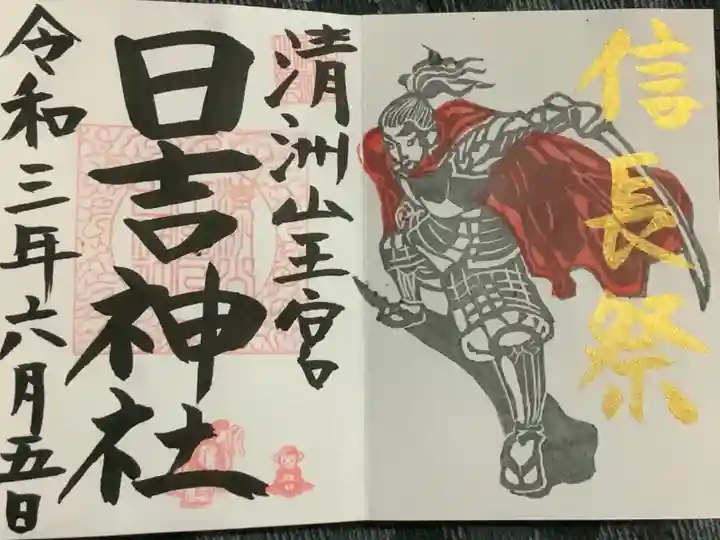 信長祭
清洲山王宮
日吉神社
令和三年六月五日